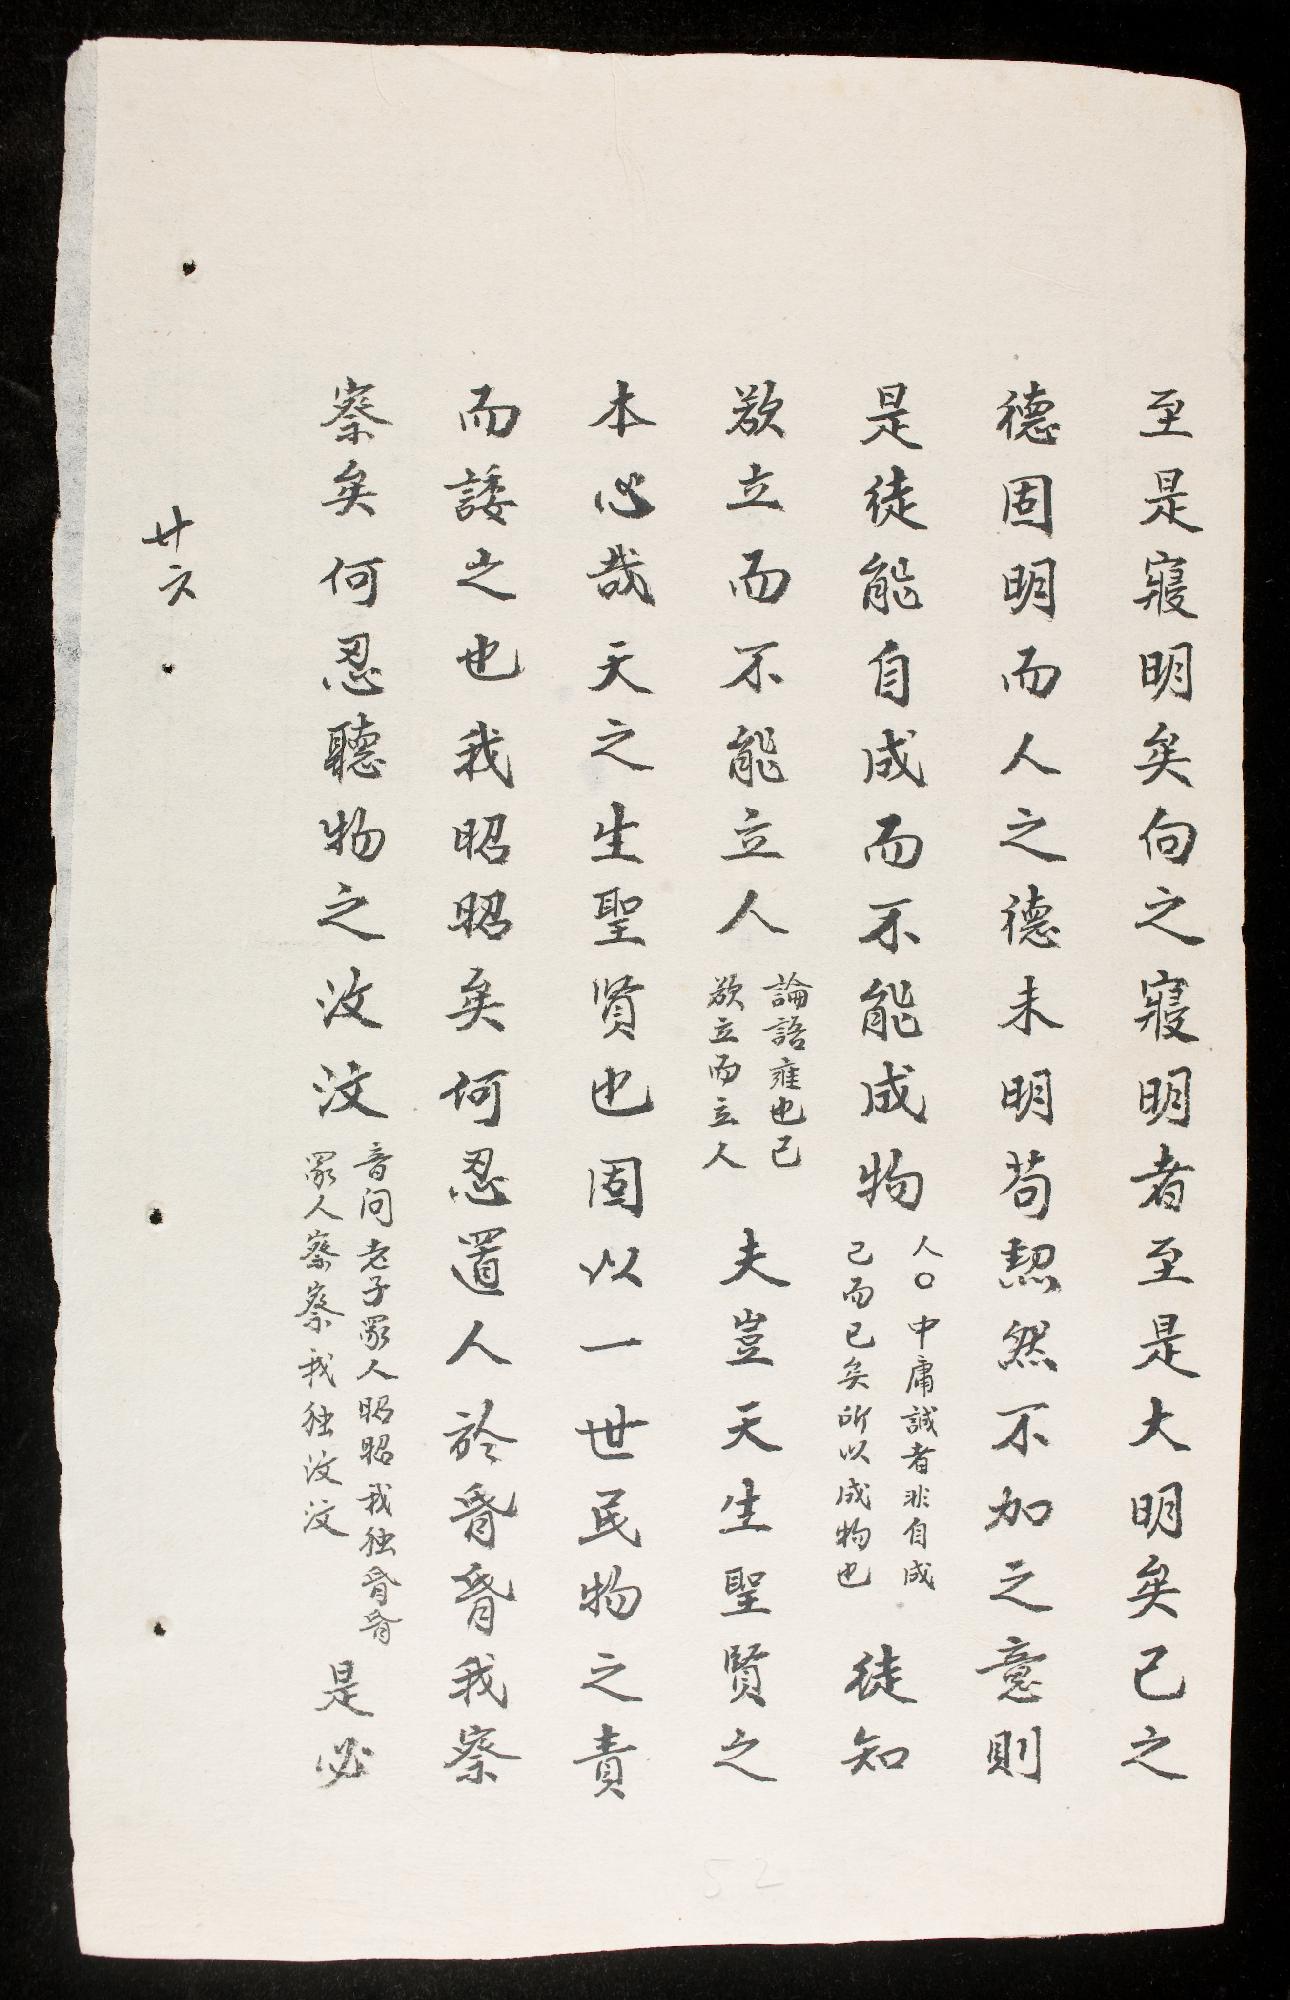 至是寢明矣向之寢明者至是大明矣己之
德固明而人之德未明苟恝然不加之意則
是徒能自成而不能成物
人〇中庸誠者非自成
己而已矣所以成物也
徒知
欲立而不能立人
論語雍也己
欲立而立人
夫豈天生聖賢之
本心哉天之生聖賢也固以一世民物之責
而諉之也我昭昭矣何忍置人於昏昏我察
察矣何忍聽物之汶汶
音问老子眾人昭昭我独昏昏
眾人察察我独汶汶
是必
廿六
52